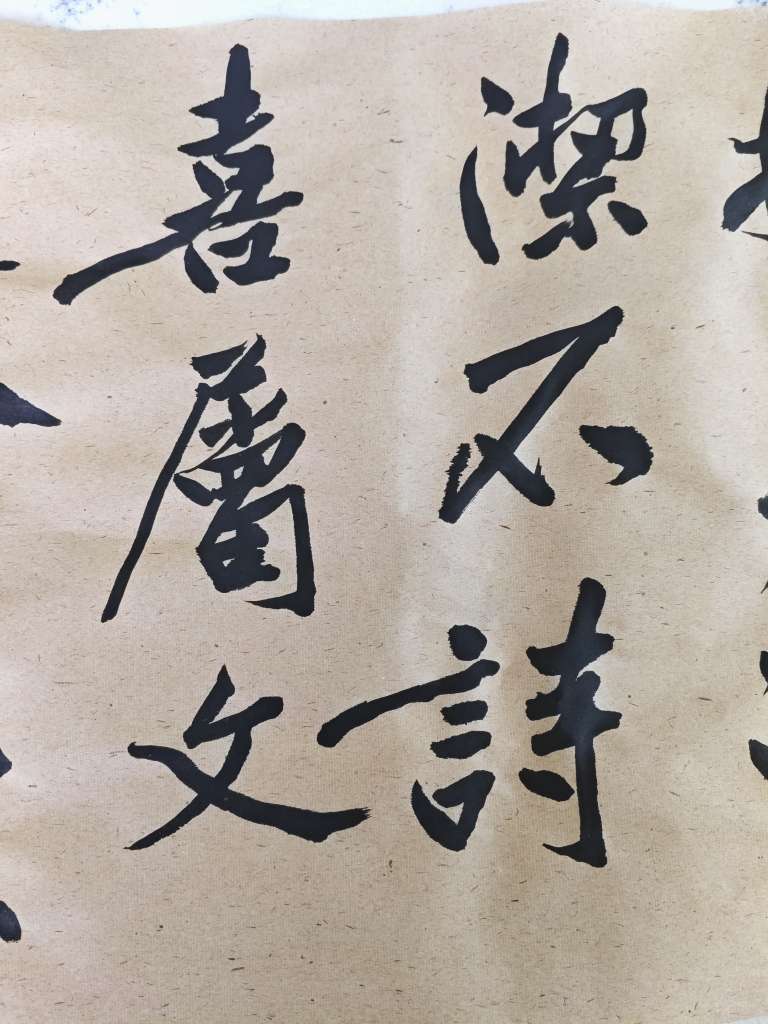 潔不詩
喜屬文